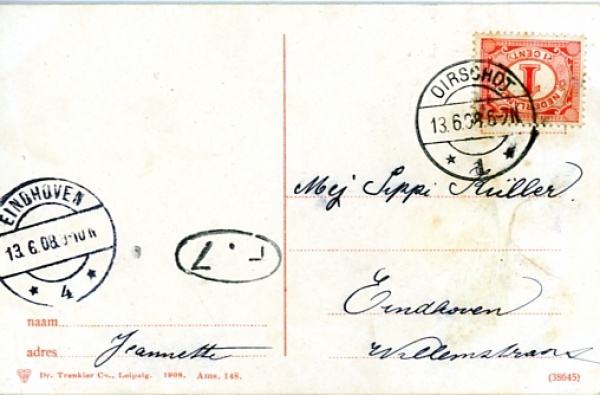 1 CENT
NEDERLAND
OIRSCHOT
13.6.08.6-7N
1
Mej Sippi Küller.
EINDHOVEN
13.6.08.9-10N
4
Eindhoven
Willemstraat
naam
adres Jeannette
Dr. Trenkler Co., Leipzig. 1908. Ams. 148.
(38645)